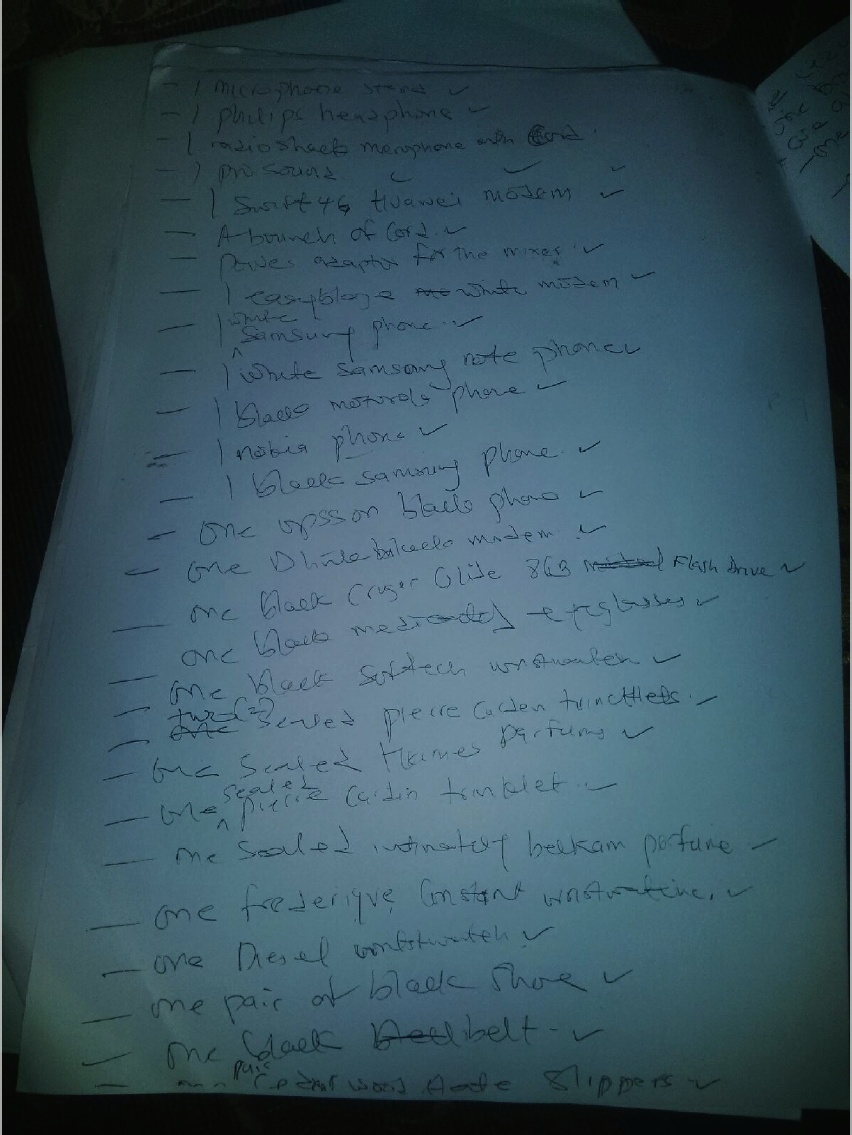 - 1 microphone stand ✓
- 1 philips headphone ✓
- 1 radioshack merophone with Cord.
- 1 pro sound ✓ ✓ ✓
- 1 Swift 4G Huawei modem ✓
- A bounch of Cord. ✓
- power adaptor for the mixer ✓
- 1 easyblaze white modem ✓
- 1 white Samsung phone. ✓
- 1 white samsong note phone ✓
- 1 black motorola phone ✓
- 1 nokia phone ✓
- 1 black samsung phone. ✓
- one black phone ✓
- one modem. ✓
- one black Cruzer Glide 8GB Flash drive ✓
- one black eyeglasses ✓
- one black wristwatch ✓
- two (2) Sealed pierre Carden ✓
- one Sealed Hermes parfums ✓
- one sealed pierre Cardin ✓
- one Sealed intimately bekkam perfume ✓
- one frederique Constant ✓
- one Diesel ✓
- one pair of black Shoe ✓
- one black belt. ✓
- pair wood Slippers ✓